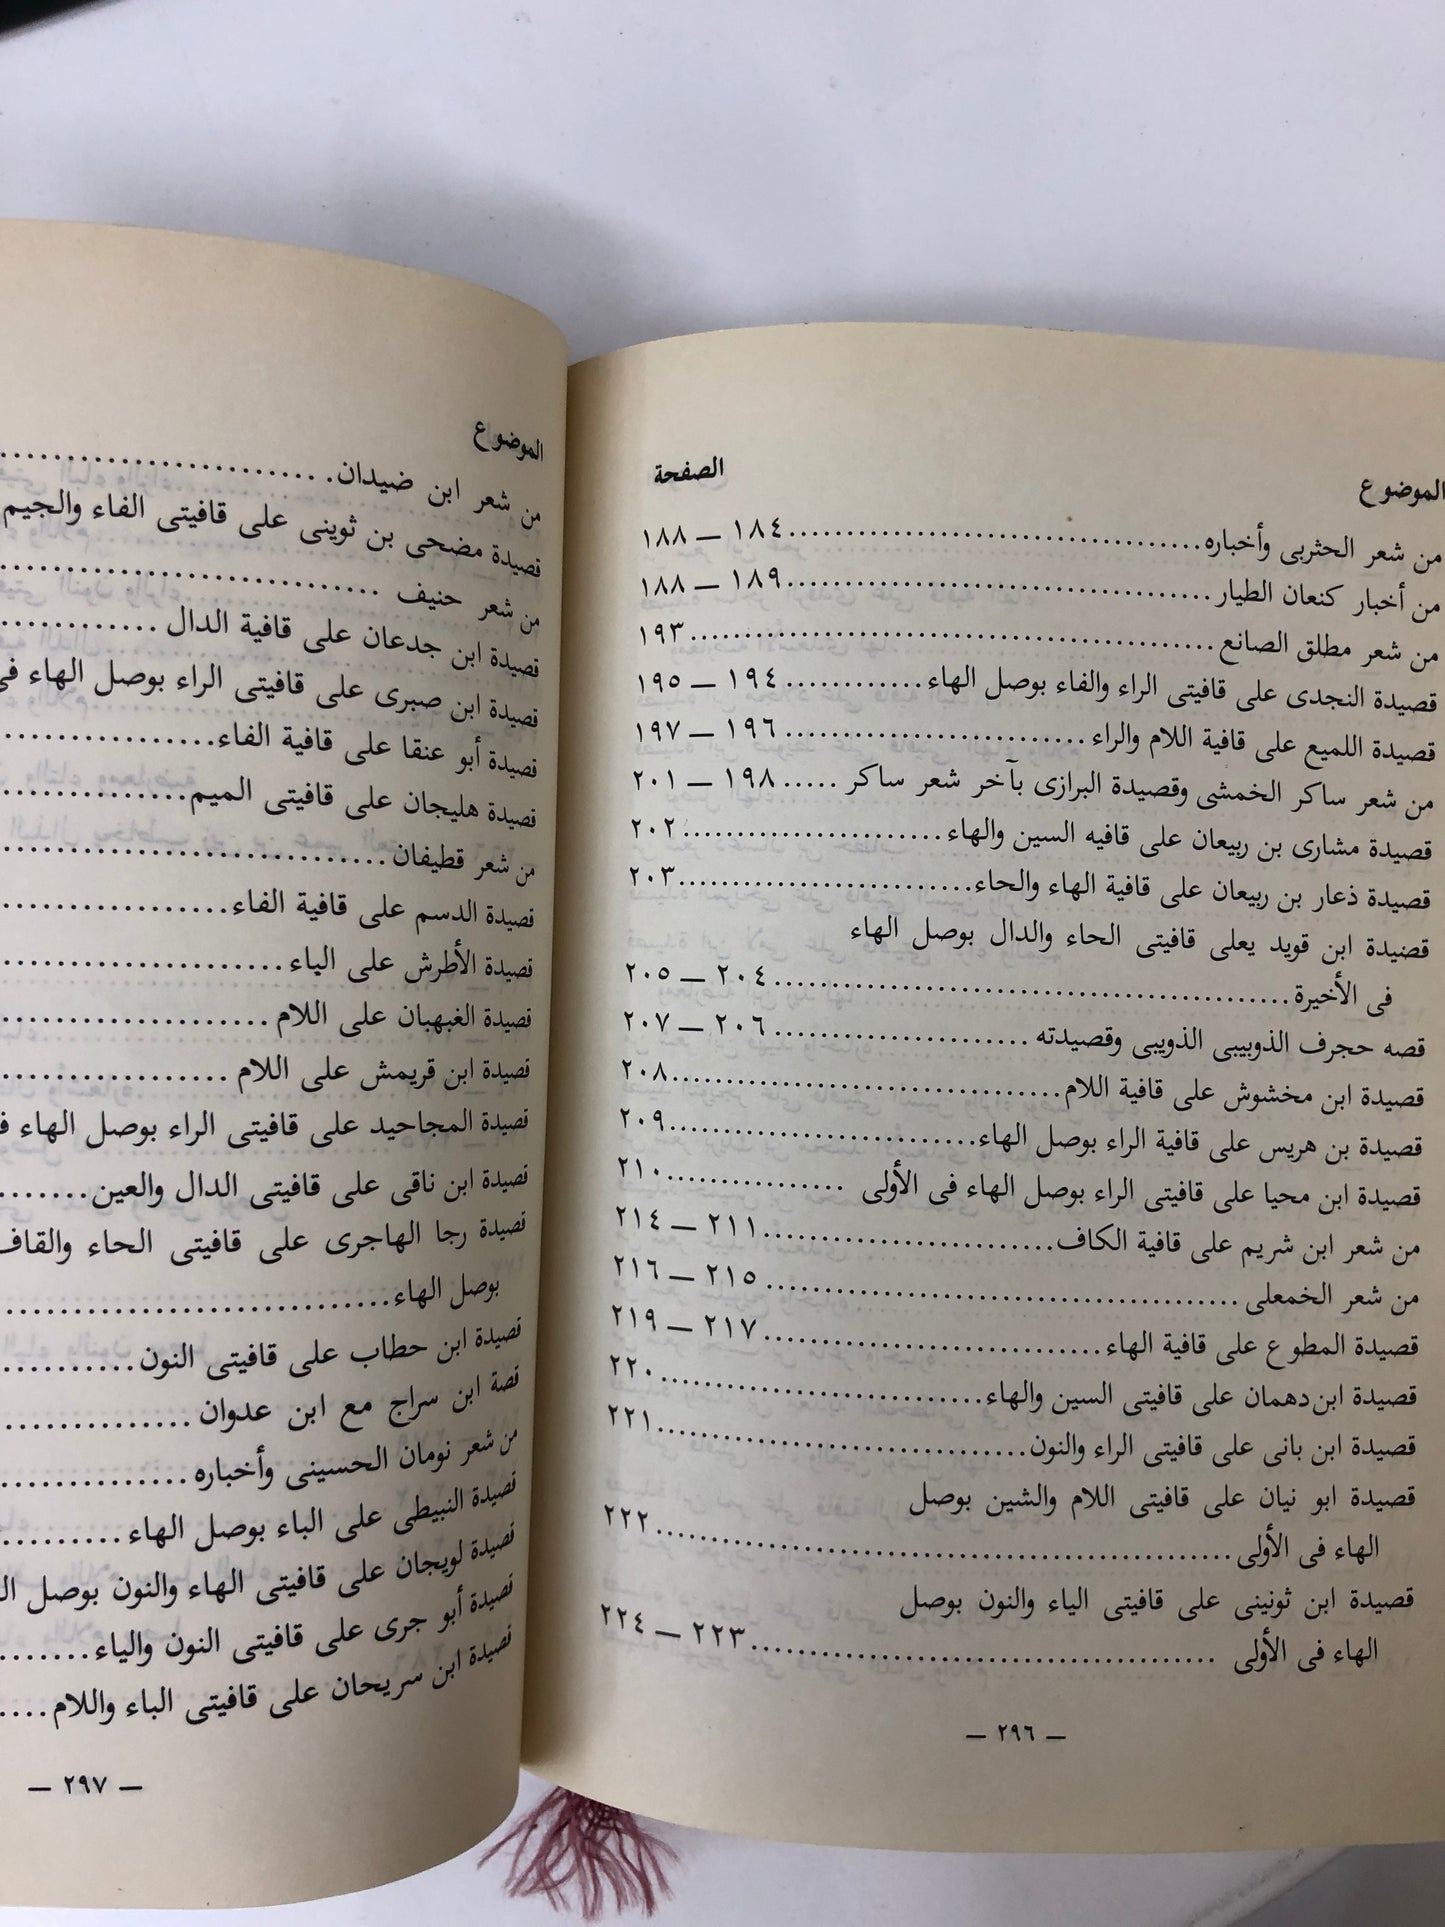 الموضوع الصفحة
من شعر الحثربى وأخباره ١٨٤ — ١٨٨
من أخبار كنعان الطيار ١٨٩ — ١٨٨
من شعر مطلق الصانع ١٩٣
قصيدة النجدى على قافيتى الراء والفاء بوصل الهاء ١٩٤ — ١٩٥
قصيدة اللميع على قافية اللام والراء ١٩٦ — ١٩٧
من شعر ساكر الخمشى وقصيدة البرازى بآخر شعر ساكر ١٩٨ — ٢٠١
قصيدة مشارى بن ربيعان على قافيه السين والهاء ٢٠٢
قصيدة ذعار بن ربيعان على قافية الهاء والحاء ٢٠٣
قضيدة ابن قويد يعلى قافيتى الحاء والدال بوصل الهاء
فى الأخيرة ٢٠٤ — ٢٠٥
قصه حجرف الذوبيبى الذويبى وقصيدته ٢٠٦ — ٢٠٧
قصيدة ابن مخشوش على قافية اللام ٢٠٨
قصيدة بن هريس على قافية الراء بوصل الهاء ٢٠٩
قصيدة ابن محيا على قافيتى الراء بوصل الهاء فى الأولى ٢١٠
من شعر ابن شريم على قافية الكاف ٢١١ — ٢١٤
من شعر الخمعلى ٢١٥ — ٢١٦
قصيدة المطوع على قافية الهاء ٢١٧ — ٢١٩
قصيدة ابن دهمان على قافيتى السين والهاء ٢٢٠
قصيدة ابن بانى على قافيتى الراء والنون ٢٢١
قصيدة ابو نيان على قافيتى اللام والشين بوصل
الهاء فى الأولى ٢٢٢
قصيدة ابن ثونينى على قافيتى الياء والنون بوصل
الهاء فى الأولى ٢٢٣ — ٢٢٤
— ٢٩٦ —
الموضوع
من شعر ابن ضيدان
قصيدة مضحى بن ثوينى على قافيتى الفاء والجيم
من شعر حنيف
قصيدة ابن جدعان على قافية الدال
قصيدة ابن صبرى على قافيتى الراء بوصل الهاء
قصيدة أبو عنقا على قافية الفاء
قصيدة هليجان على قافيتى الميم
من شعر قطيفان
قصيدة الدسم على قافية الفاء
قصيدة الأطرش على الياء
قصيدة الغبهبان على اللام
قصيدة ابن قريمش على اللام
قصيدة المجاحيد على قافيتى الراء بوصل الهاء
قصيدة ابن ناقى على قافيتى الدال والعين
قصيدة رجا الهاجرى على قافيتى الحاء والقاف
بوصل الهاء
قصيدة ابن حطاب على قافيتى النون
قصة ابن سراج مع ابن عدوان
من شعر نومان الحسينى وأخباره
قصيدة النبيطى على الباء بوصل الهاء
قصيدة لويجان على قافيتى الهاء والنون بوصل
قصيدة أبو جرى على قافيتى النون والياء
قصيدة ابن سريحان على قافيتى الباء واللام
— ٢٩٧ —